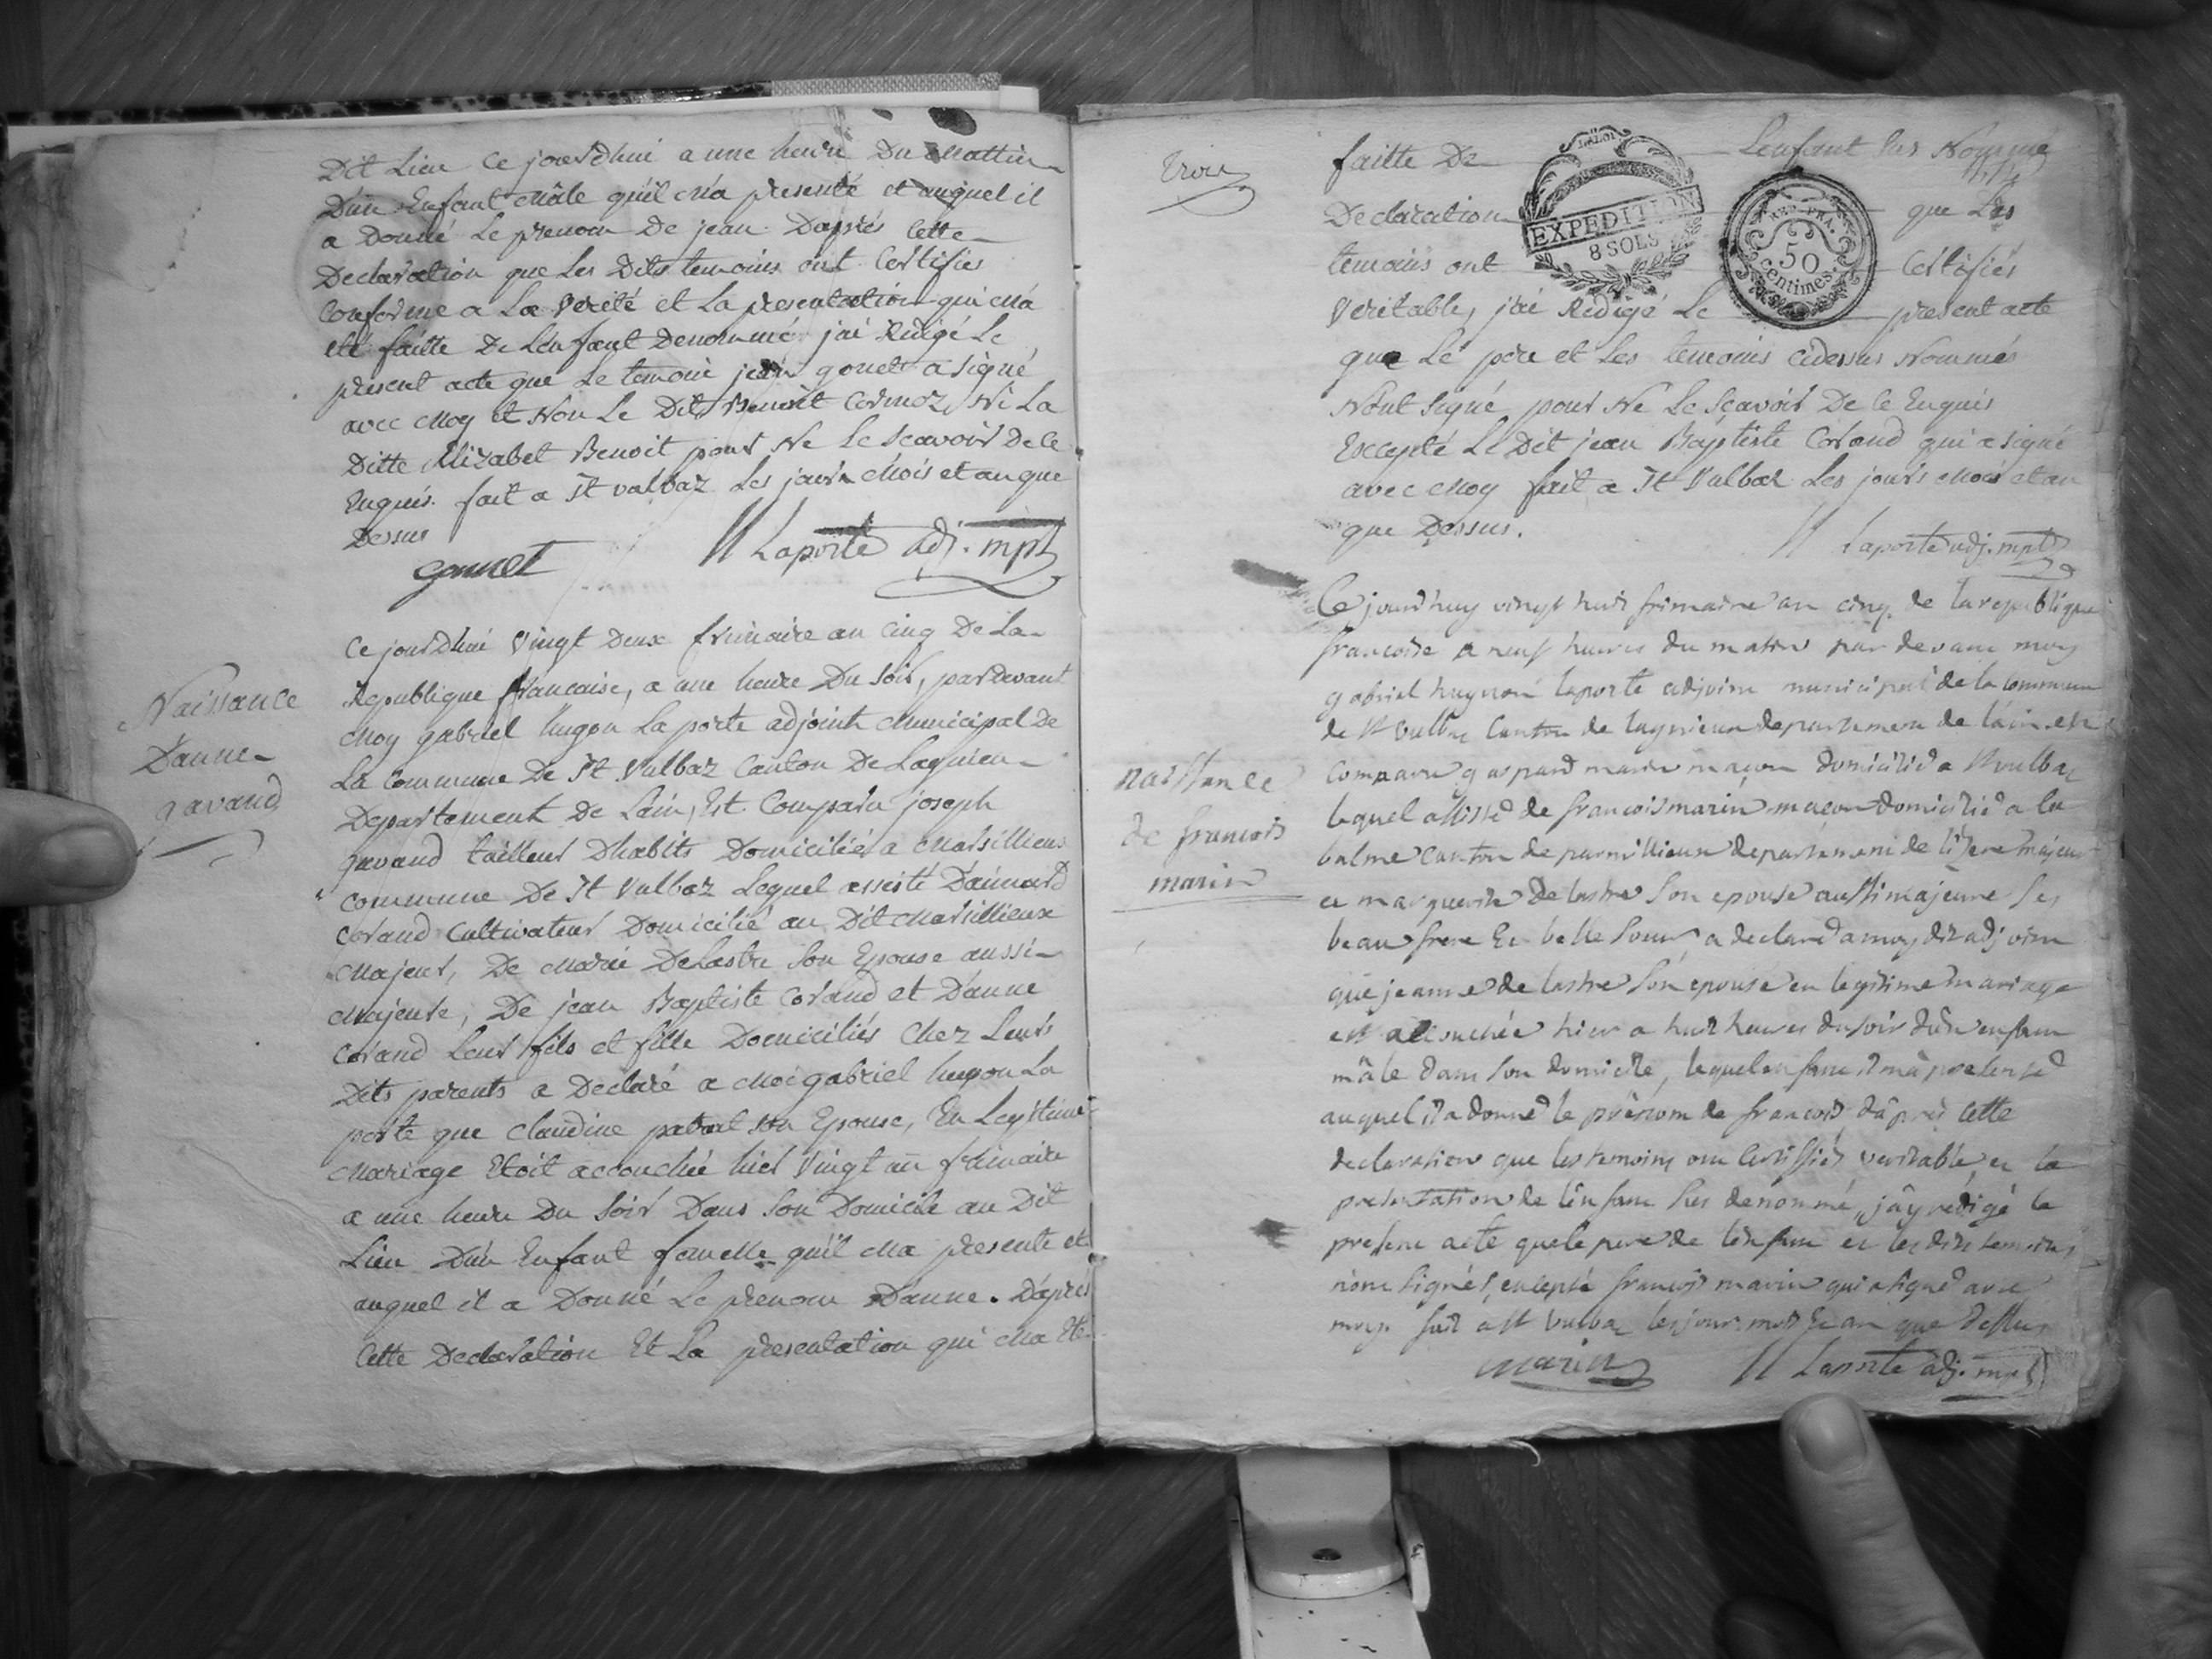 Dit Lieu Ce jourdhui a une heure Du Mattin
D'un Enfant Mâle qu'il m'a presenté et auquel il
a Donné Le prenom De jean. D'aprés Cette
Declaration que Les Dits temoins ont Certifiés
Conforme a La Verité et La presentation qui m'a
été faitte De L'enfant Denommé j'ai Redigé Le
present acte que Le temoin jean gonet a signé
avec Moy et Non Le Dit Benoit Cormoz, Ni La
Ditte Elizabet Benoit pour Ne Le Scavoir De Ce
Enquis. fait a St valbaz Les jour Mois et an que
Dessus
gonnet
H Laporte adj. mpl
Naissance
D'anne
gavand
Ce jourdhui Vingt Deux frimaire an Cinq De La
Republique francaise, a une heure Du Soir, pardevant
Moy gabriel hugon La porte adjoint Municipal De
La Commune De St Vulbaz Canton De Lagnieu
Departement De Lain, Est Comparu joseph
gavand tailleur Dhabits Domicilié a Marsillieux
Commune De St Vulbaz Lequel assisté D'aimard
Corand Cultivateur Domicilié au Dit Marsillieux
Majeur, De Marie Delastre Son Epouse aussi
Majeure, De jean Baptiste Corand et D'anne
Corand Leur fils et fille Domiciliés Chez Leurs
Dits parents a Declaré a Moi gabriel hugon La
porte que Claudine Son Epouse, En Legitime
Mariage Etoit accouchée hier Vingt un frimaire
a une heure Du Soir Dans Son Domicile au Dit
Lieu D'un Enfant femelle qu'il Ma presenté et
auquel il a Donné Le prenom D'anne. D'aprés
Cette Declaration Et La presentation qui Ma Eté
trois
faitte De L'enfant Sus Nommé
Declaration que Les
temoins ont Certifiés
Veritable, j'ai Redigé Le present acte
LA LOI
EXPEDITION
8 SOLS
REP. FRA.
50
centimes
que Le pére et Les temoins cidessus Nommés
N'ont Signé pour Ne Le Sçavoir De Ce Enquis
Excepté Le Dit jean Baptiste Corand qui a signé
avec Moy fait a St Vulbaz Les jours Mois et an
que Dessus.
H Laporte adj. mpl
naissance
de francois
marin
Ce jourd'huy vingt huit frimaire an cinq de la republique
francoise a neuf heures du matin par devant moy
gabriel hugon laporte adjoint municipal de la commune
de St Vulbaz Canton de lagnieux departement de l'ain est
comparu gaspard marin maçon domicilié a St vulbaz
lequel assisté de francois marin maçon domicilié a la
balme canton de parmillieux departement de lizere majeur
et marguerite delastre son epouse aussi majeure ses
beau frere et belle soeur a declaré a moy dit adjoint
que jeanne delastre son epouse en legitime mariage
est accouchée hier a huit heures du soir d'un enfant
mâle dans son domicile, lequel enfant il m'a presenté
auquel il a donné le prénom de francois, d'aprés cette
declaration que les temoins ont certiffiés veritable et la
presentation de l'enfant sus dénommé, j'ay redigé le
present acte que le pere de l'enfant et les dits temoins
n'ont signés, excepté francois marin qui a signé avec
moy. fait a St Vulbaz les jour mois et an que dessus
marin
H Laporte adj. mpl